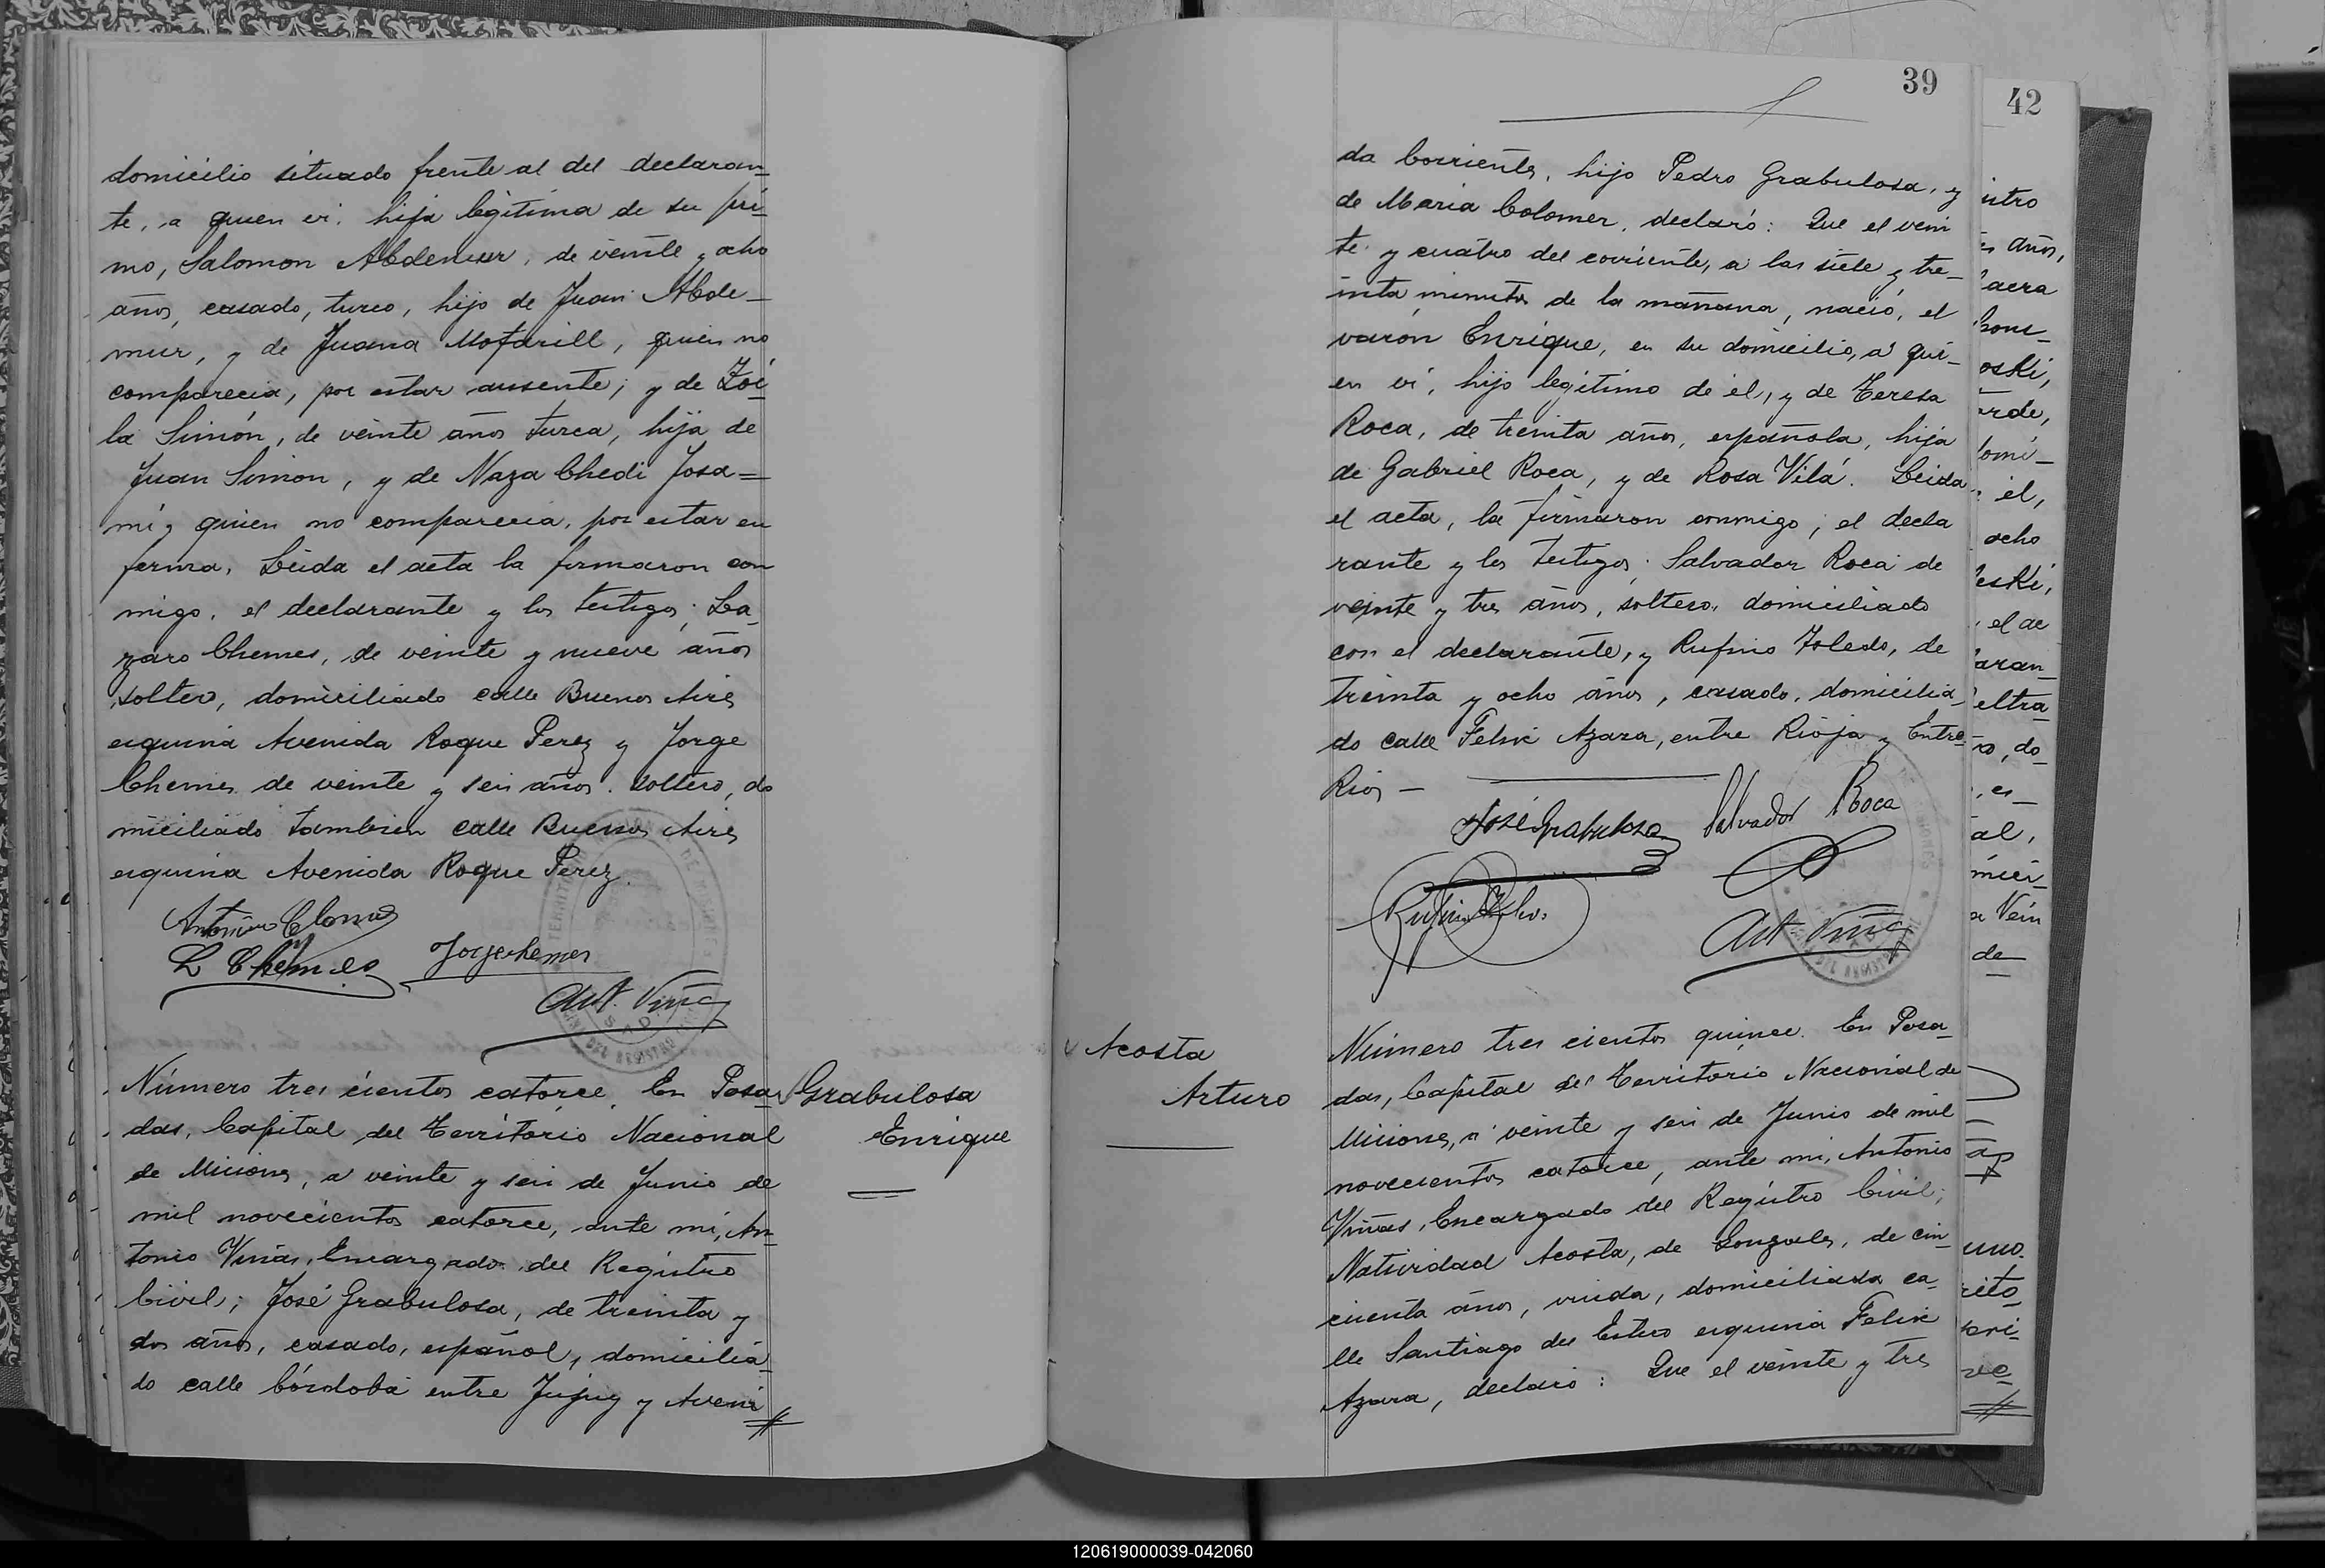 domicilio situado frente al del declaran-
te, a quien vi, hija legítima de su pri-
mo, Salomon Abdenur, de veinte y ocho
años, casado, turco, hijo de Juan Abde-
mur, y de Juana Mofarill, quien no
comparecia, por estar ausente; y de Zoi-
la Simón, de veinte años turca, hija de
Juan Simon, y de Naza Chedi Josa=
mi, quien no comparecia, por estar en
ferma. Leida el acta la firmaron con
migo, el declarante y los testigos; La-
zaro Chemes, de veinte y nueve años
soltero, domiciliado calle Buenos Aires
esquina Avenida Roque Perez y Jorge
Chemes de veinte y seis años. soltero, do
miciliado tambien calle Buenos Aires
esquina Avenida Roque Perez.
Antonio
L Chemes Jorge chemes
Ant. Viñas
Número tres cientos catorce. En Posa-
das, Capital del Territorio Nacional
de Misiones, a veinte y seis de Junio de
mil novecientos catorce, ante mi, An-
tonio Viñas, Encargado del Registro
Civil; José Grabulosa, de treinta y
dos años, casado, español, domicilia-
do calle Córdoba entre Jujuy y Aveni
Grabulosa
Enrique
39
da Corrientes, hijo Pedro Grabulosa, y
de Maria Colomer, declaró: Que el vein
te y cuatro del corriente, a las siete y tre-
inta minutos de la mañana, nació, el
varón Enrique, en su domicilio, a qui-
en vi, hijo legítimo de él, y de Teresa
Roca, de treinta años, española, hija
de Gabriel Roca, y de Rosa Vilá. Leida
el acta, la firmaron conmigo; el decla
rante y los testigos: Salvador Roca de
veinte y tres años, soltero, domiciliado
con el declarante, y Rufino Toledo, de
treinta y ocho años, casado, domicilia-
do calle Felix Azara, entre Rioja y Entre
Rios -
José Grabulosa Salvador Roca
Ant Viñas
Acosta
Arturo
Número tres cientos quince. En Posa-
das, Capital del Territorio Nacional de
Misiones, a veinte y seis de Junio de mil
novecientos catorce, ante mi, Antonio
Viñas, Encargado del Registro Civil;
Natividad Acosta, de Gonzales, de cin-
cuenta años, viuda, domiciliada ca-
lle Santiago del Estero esquina Felix
Azara, declaró: Que el veinte y tres
42
años,
oski,
omi-
él,
ocho
eski,
el ac
aran-
eltra-
do-
al,
de
uno.
120619000039-042060